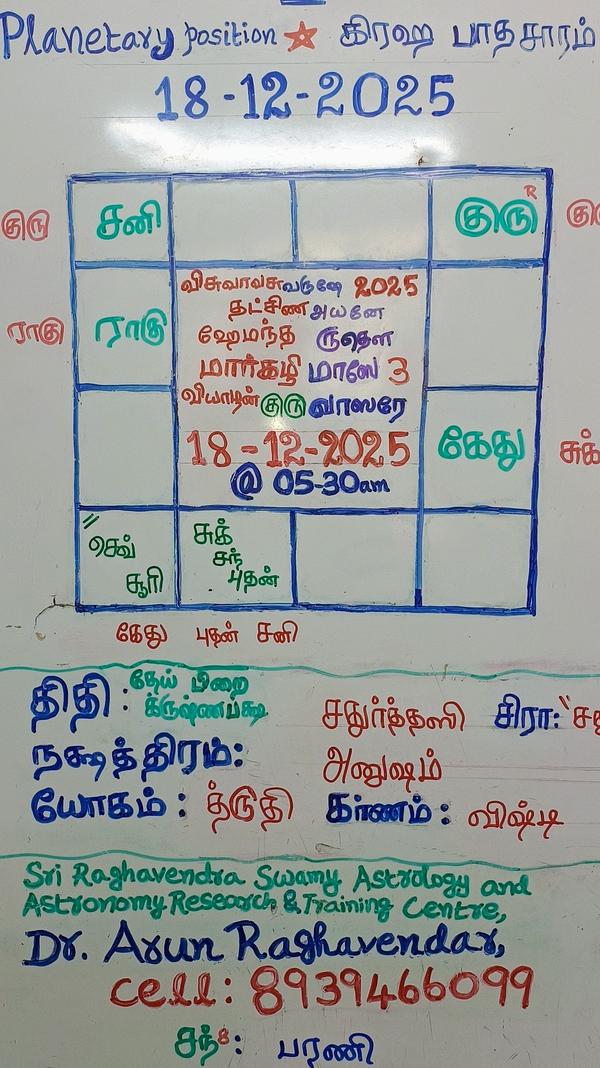 Planetary position ★ கிரஹ பாதசாரம்
18-12-2025
குரு சனி குரு R
ராகு ராகு
விசுவாவசுவருஷே 2025
தட்சிண அயனே
ஹேமந்த ருதௌ
மார்கழி மாஸே 3
வியாழன் குரு வாஸரே
18-12-2025
@ 05-30am
கேது சுக்
" செவ் சூரி
சுக் சந் புதன்
கேது புதன் சனி
திதி : தேய் பிறை க்ருஷ்ணபக்ஷ சதுர்த்தஸி சிரா:
நக்ஷத்திரம்: அனுஷம்
யோகம் : த்ருதி கர்ணம் : விஷ்டி
Sri Raghavendra Swamy Astrology and
Astronomy Research & Training Centre,
Dr. Arun Raghavendar,
Cell: 8939466099
சந்8: பரணி